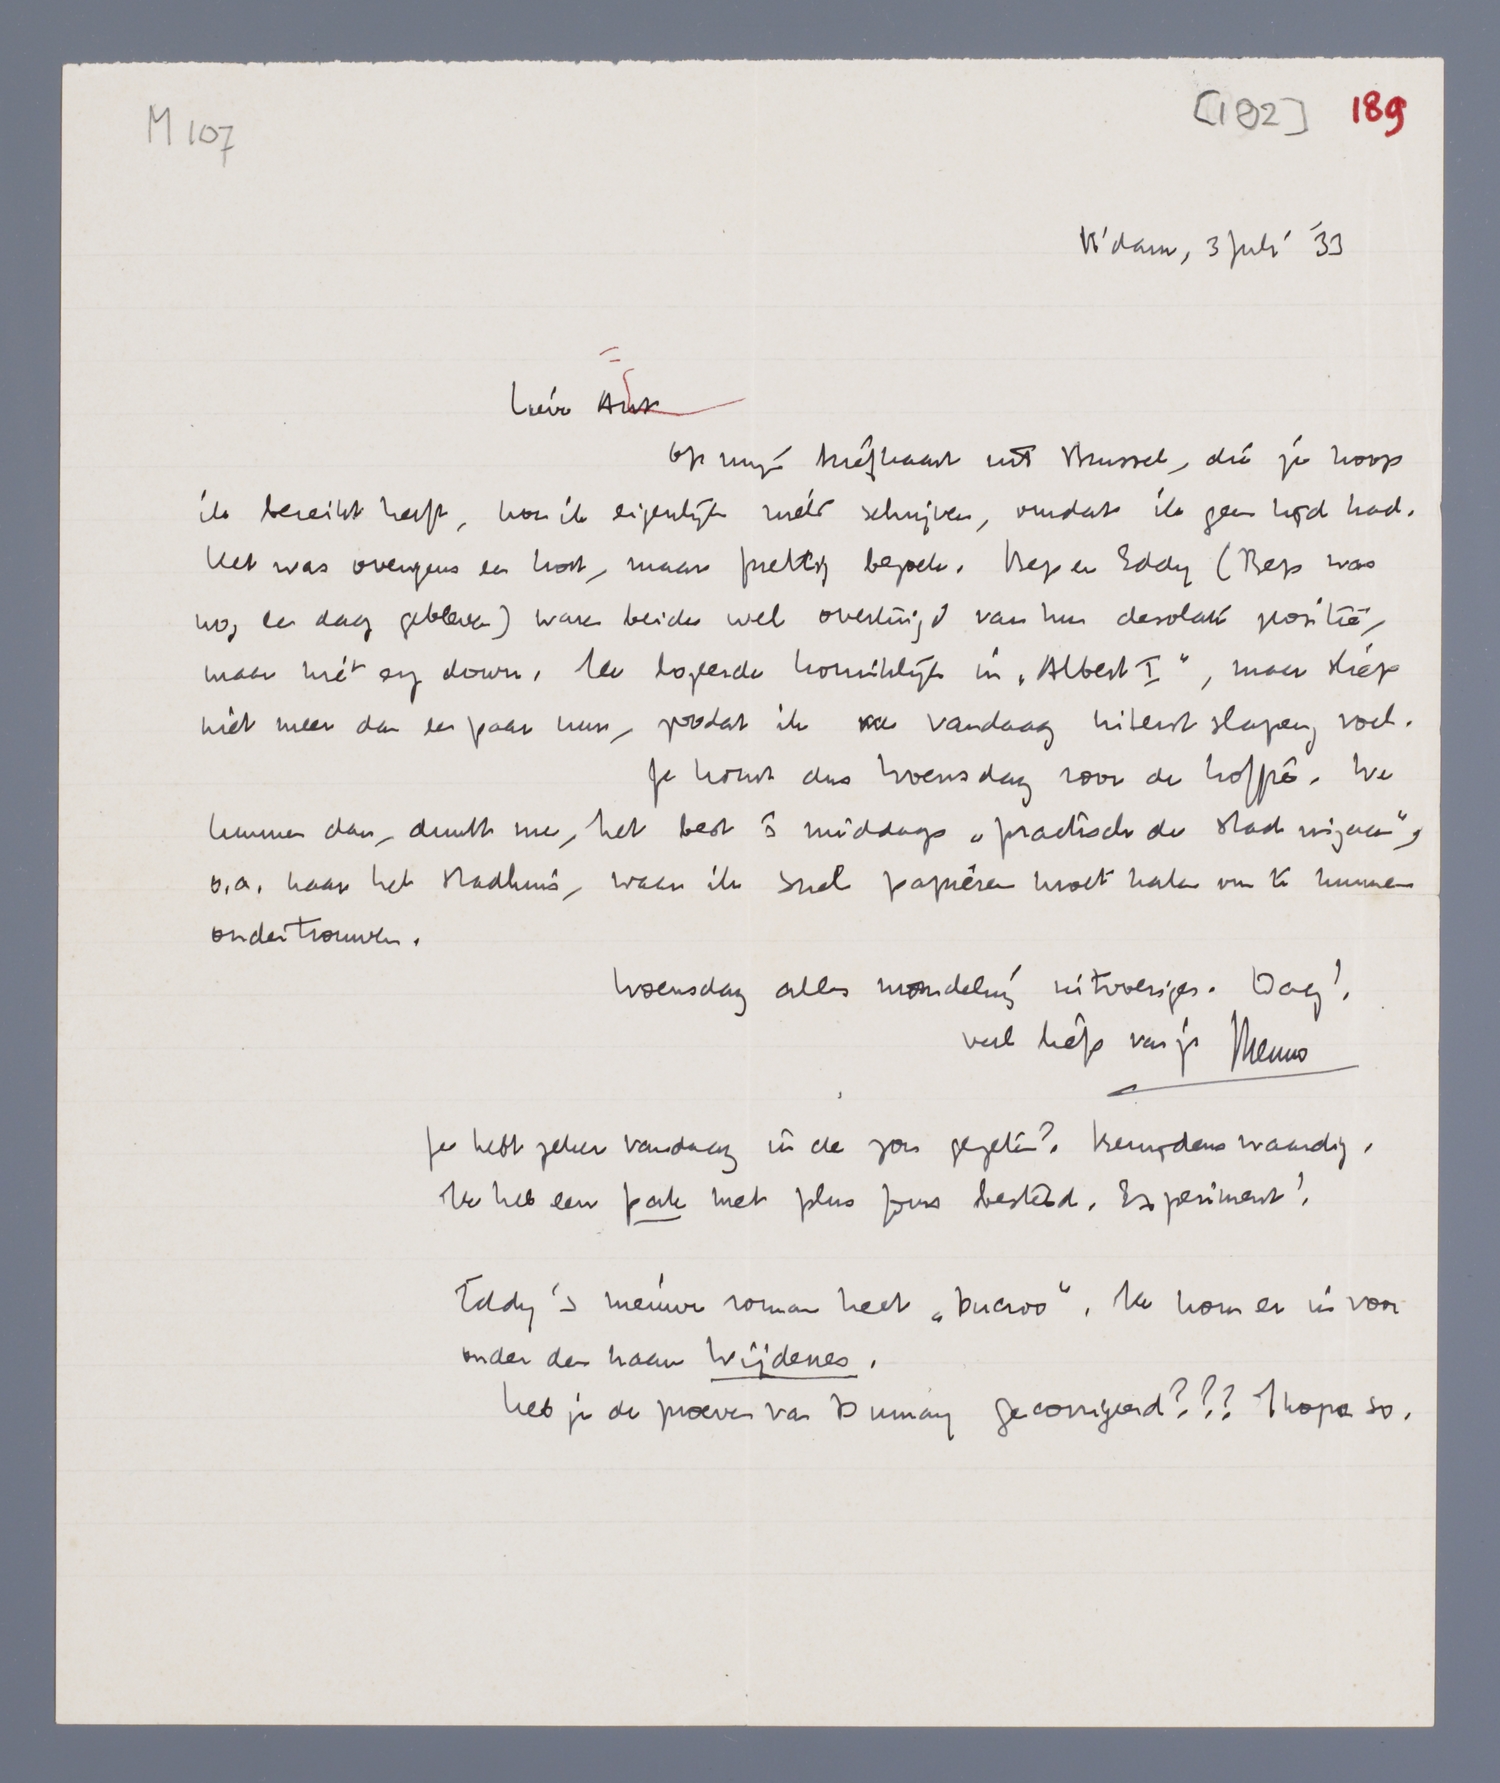 M 107
[192] 189
R'dam, 3 Juli '33
Lieve Ant
Op mijn briefkaart uit Brussel, die je hoop
ik bereikt heeft, kon ik eigenlijk niets schrijven, omdat ik geen tijd had.
Het was overigens een kort, maar prettig bezoek. Bep en Eddy (Bep was
nog een dag gebleven) waren beiden wel overtuigd van hun desolate positie,
maar niet erg down. Ik logeerde koninklijk in „Albert I", maar sliep
niet meer dan een paar uur, zoodat ik me vandaag uiterst slaperig voel.
Je komt dus Woensdag voor de koffie. We
kunnen dan, dunkt me, het best 's middags „practisch de stad ingaan",
o.a. naar het stadhuis, waar ik snel papieren moet halen om te kunnen
ondertrouwen.
Woensdag alles mondeling uitvoeriger. Dag!
veel liefs van je Menno
Je hebt zeker vandaag in de zon gezeten? Benijdenswaardig.
Ik heb een pak met plus fours besteld. Experiment!
Eddy's nieuwe roman heet „Ducroo". Ik kom er in voor
onder den naam Wijdenes.
Heb je de proeven van Dumay gecorrigeerd??? I hope so.